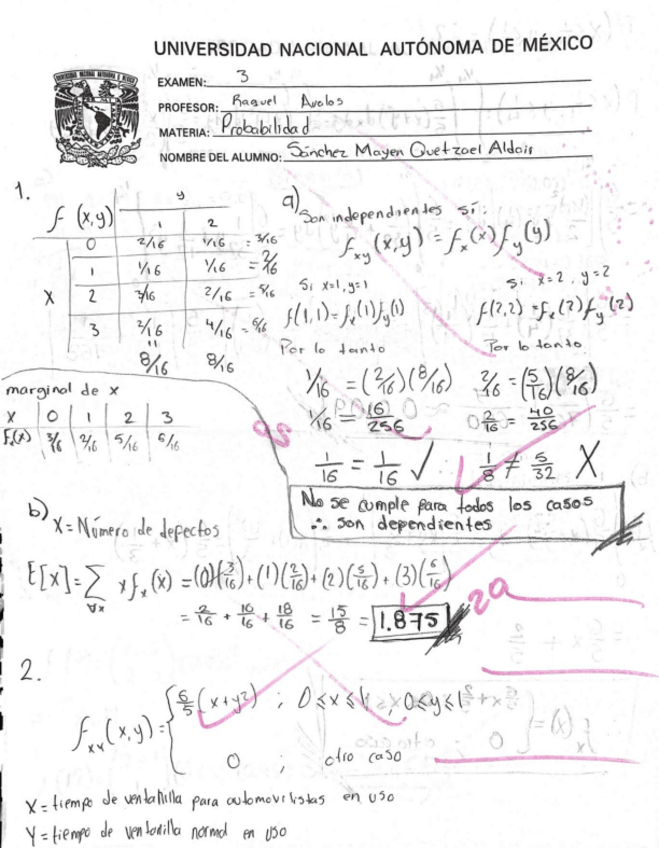 UNIVERSIDAD NACIONAL AUTÓNOMA DE MÉXICO
EXAMEN: 3
PROFESOR: Raquel Avalos
MATERIA: Probabilidad
NOMBRE DEL ALUMNO: Sánchez Mayen Quetzael Aldair
1.
f (x,y) y
1 2
0 2/16 1/16 = 3/16
1 1/16 1/16 = 2/16
X 2 3/16 2/16 = 5/16
3 2/16 4/16 = 6/16
8/16 8/16
marginal de x
X 0 1 2 3
Fx(x) 3/16 2/16 5/16 6/16
a) Son independientes sí:
fxy(x,y) = fx(x) fy(y)
Si x=1, y=1 Si x=2, y=2
f(1,1) = fx(1) fy(1) f(2,2) = fx(2) fy(2)
Por lo tanto Por lo tanto
1/16 = (2/16)(8/16) 2/16 = (5/16)(8/16)
1/16 = 16/256 2/16 = 40/256
1/16 = 1/16 ✓ 1/8 ≠ 5/32 X
No se cumple para todos los casos
∴ son dependientes
20
b) X = Número de defectos
E[x] = ∑∀x x fx(x) = (0)(3/16) + (1)(2/16) + (2)(5/16) + (3)(6/16)
= 2/16 + 10/16 + 18/16 = 15/8 = 1.875
20
2.
fxy(x,y) = { 6/5 (x+y²) ; 0≤x≤1, 0≤y≤1
0 ; otro caso
X = tiempo de ventanilla para automovilistas en uso
Y = tiempo de ventanilla normal en uso